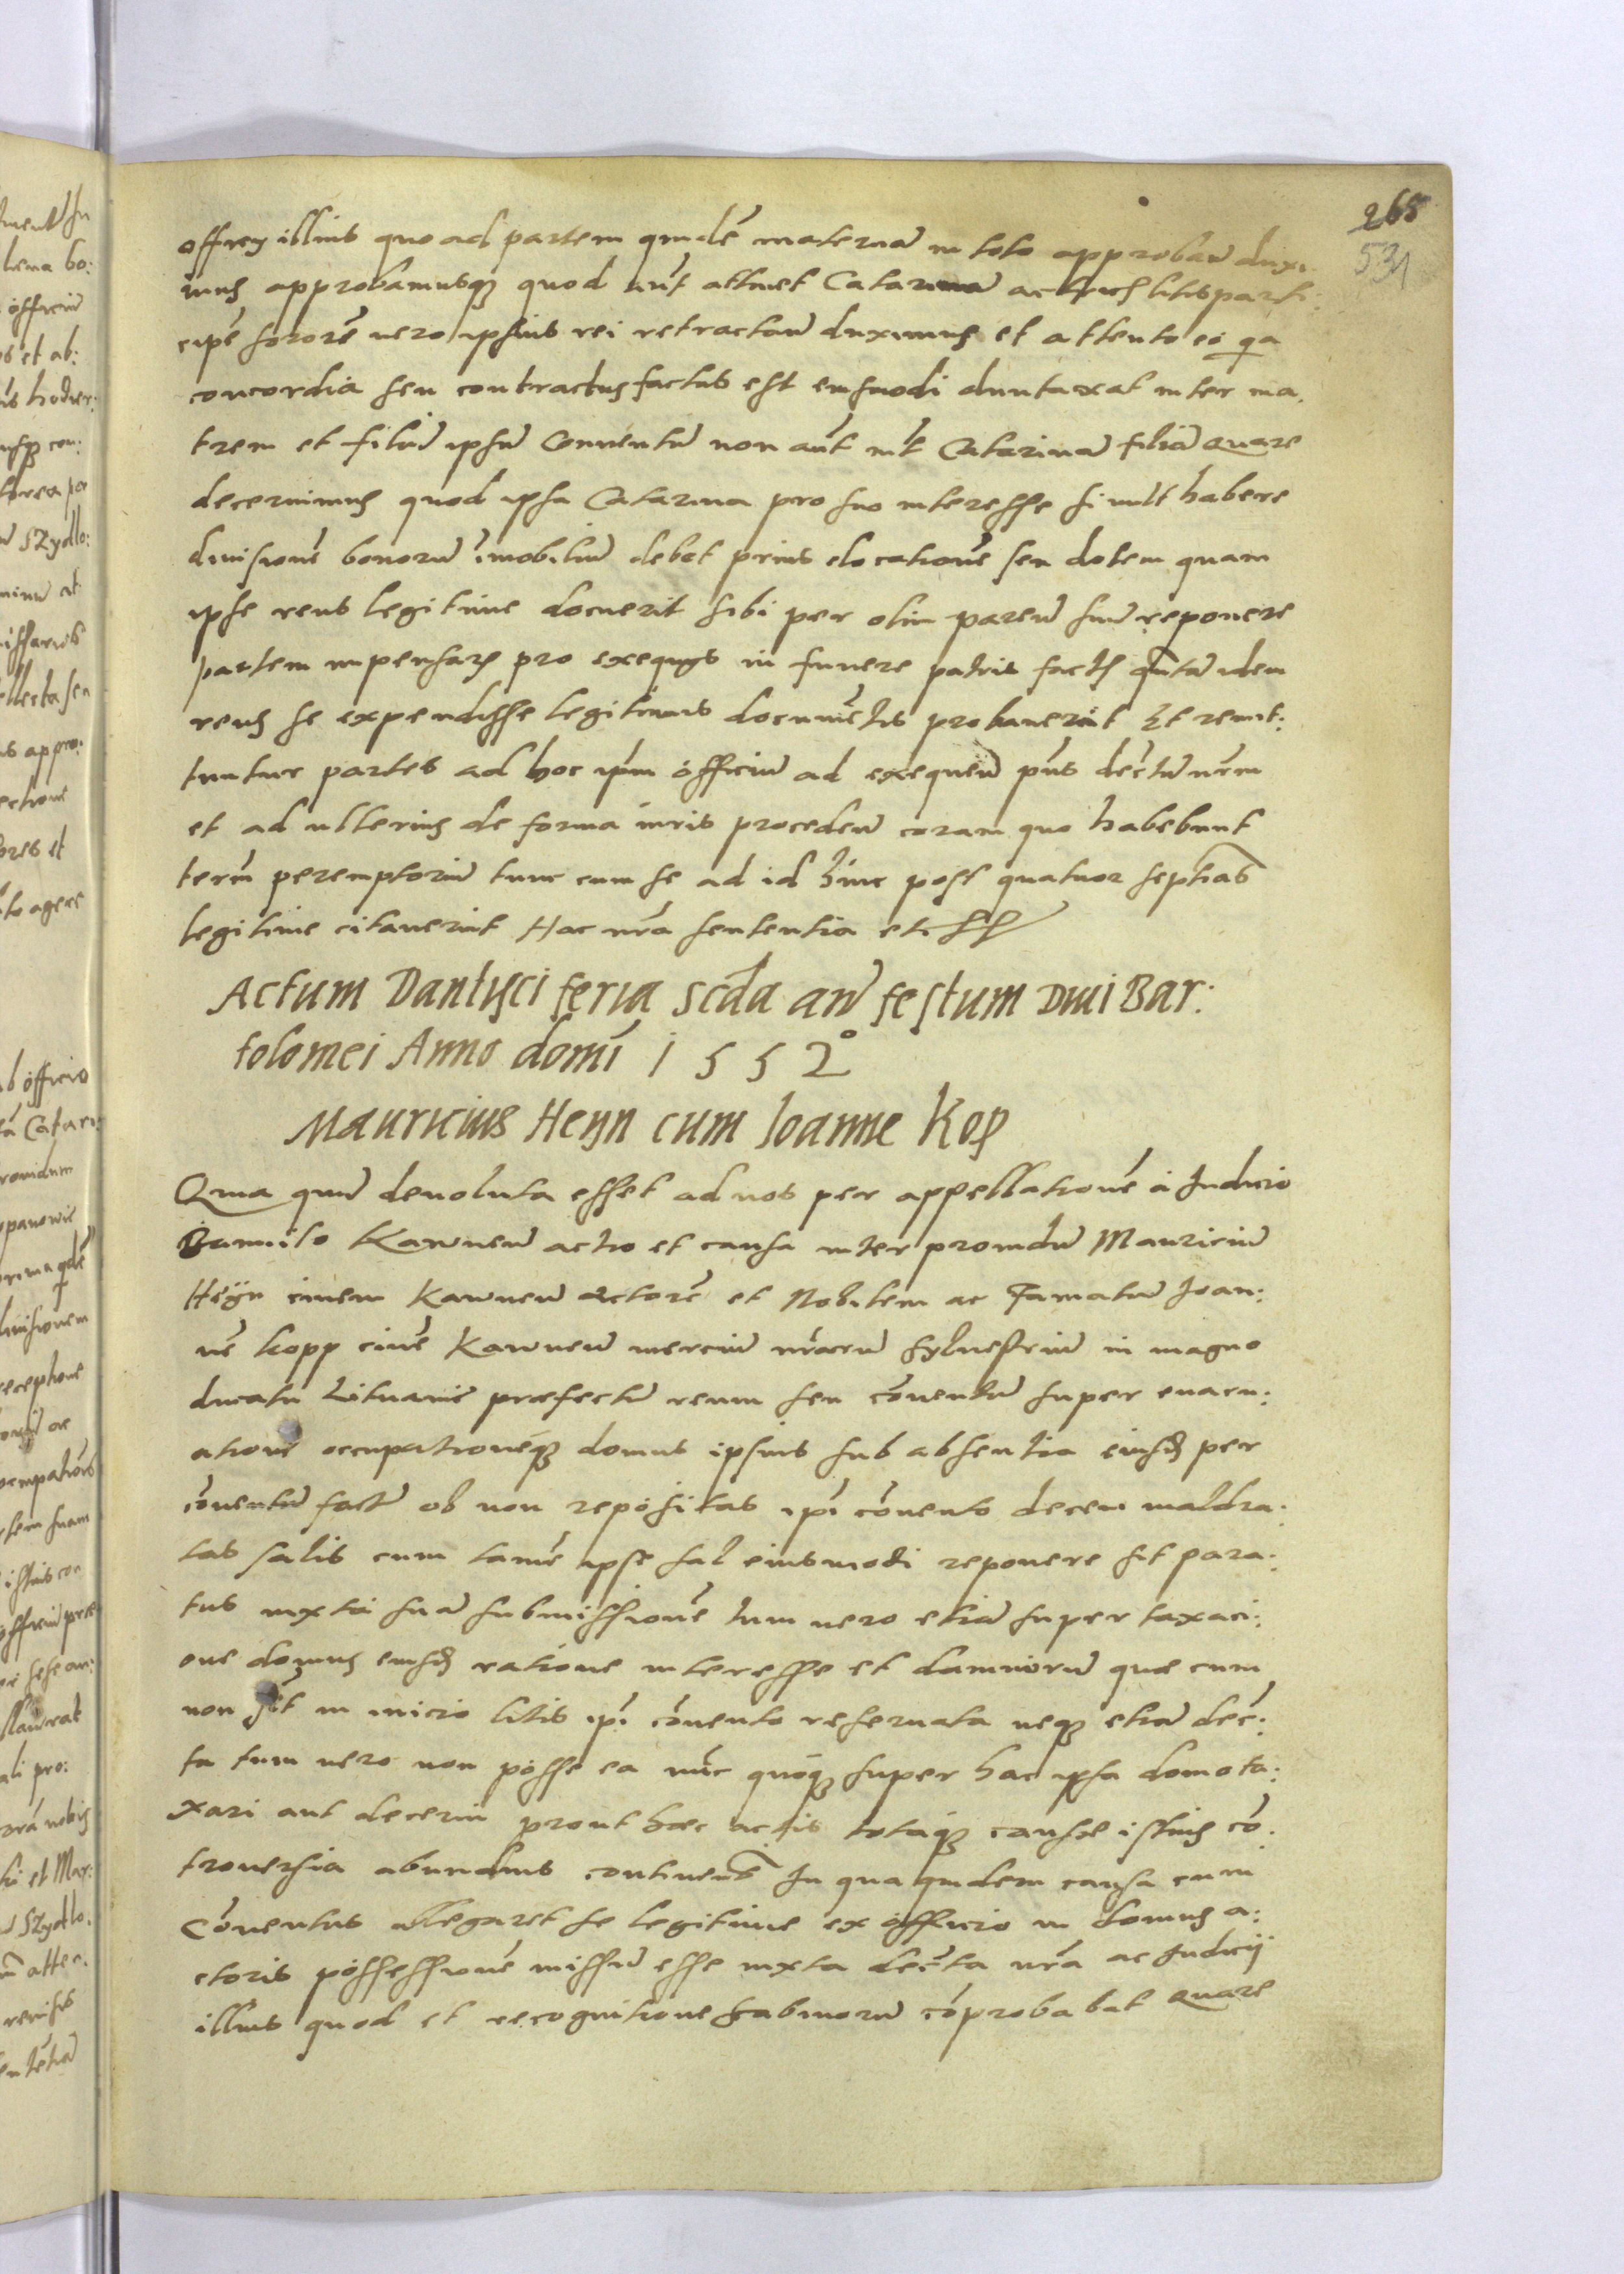 265
531
officij illius quo ad partem quidē maternā in toto approbanā duxi
mus approbamusq; quod aūt attinet Catarinā actricis litis parti:
cipē sororē uero ipsius rei retractanā duximus et attento eo qa
concordia seu contractus factus est eiusmodi duntaxat inter ma.
trem et filiū ipsum Conuentū non aūt int̄ Catarinam filiā quare
decernimus quod ipsa Catarina pro suo interesse si uult habere
diuisionē bonorū īmobiliū debet prius elocationē seu dotem quam
ipse reus legitime docuerit sibi per olim parenē suū reponere
partem impensarū pro exequijs in funere patris factis quātā idem
reus se expendisse legitimis documētis probauerit Et remit:
tuntur partes ad hoc ipm̄ officiū ad exequenū pn̄s decr̄tū nr̄m
et ad ulterius de forma iuris procedenū coram quo habebunt
term̄ peremptoriū tunc cum se ad id hinc post quatuor septīas
legitime citauerint Hac nr̄a sententia etc
Actum Dantisci feria scd̄a an̄ festum Diui Bar:
tolomei Anno domī 1552°
Mauricius Heyn cum Ioanne Kop
Qua quū deuoluta esset ad nos per appellationē à Iudicio
Bannito Kawnenū actio et causa inter prouidū Mauriciū
Heÿn ciuem Kawnenū actorē et Nobilem ac Famatū Ioan:
nē kopp ciuē Kawnenū merciū nr̄arū syluestriū in magno
ducatu Lituanie præfectū reum seu cōuentū super euacu:
atione occupationeq; domus ipsius sub absentia eiusd̄ per
cōuentū factū ob non repositas ipī cōuento decem maldra:
tas salis cum tamē ipse sal eiusmodi reponere sit para:
tus iuxta suā submissionē tum uero etiā super taxaci:
one domus eiusd̄ ratione interesse et damnorū quæ cum
non sīt in inicio litis ipī cōuento reseruata neq; etiā decr̄:
ta tum uero non posse ea nūc quoq; super hac ipsa domo ta:
xari aut decerni prout hæc actis totaq; causæ istius cō:
trouersia abundius continent̄ In qua quidem causa cum
Cōuentus allegaret se legitime ex officio in domus a:
ctoris possessionē missū esse iuxta decr̄ta nr̄a ac Iudicij
illius quod et recognitione scabinorū cōprobabat quare